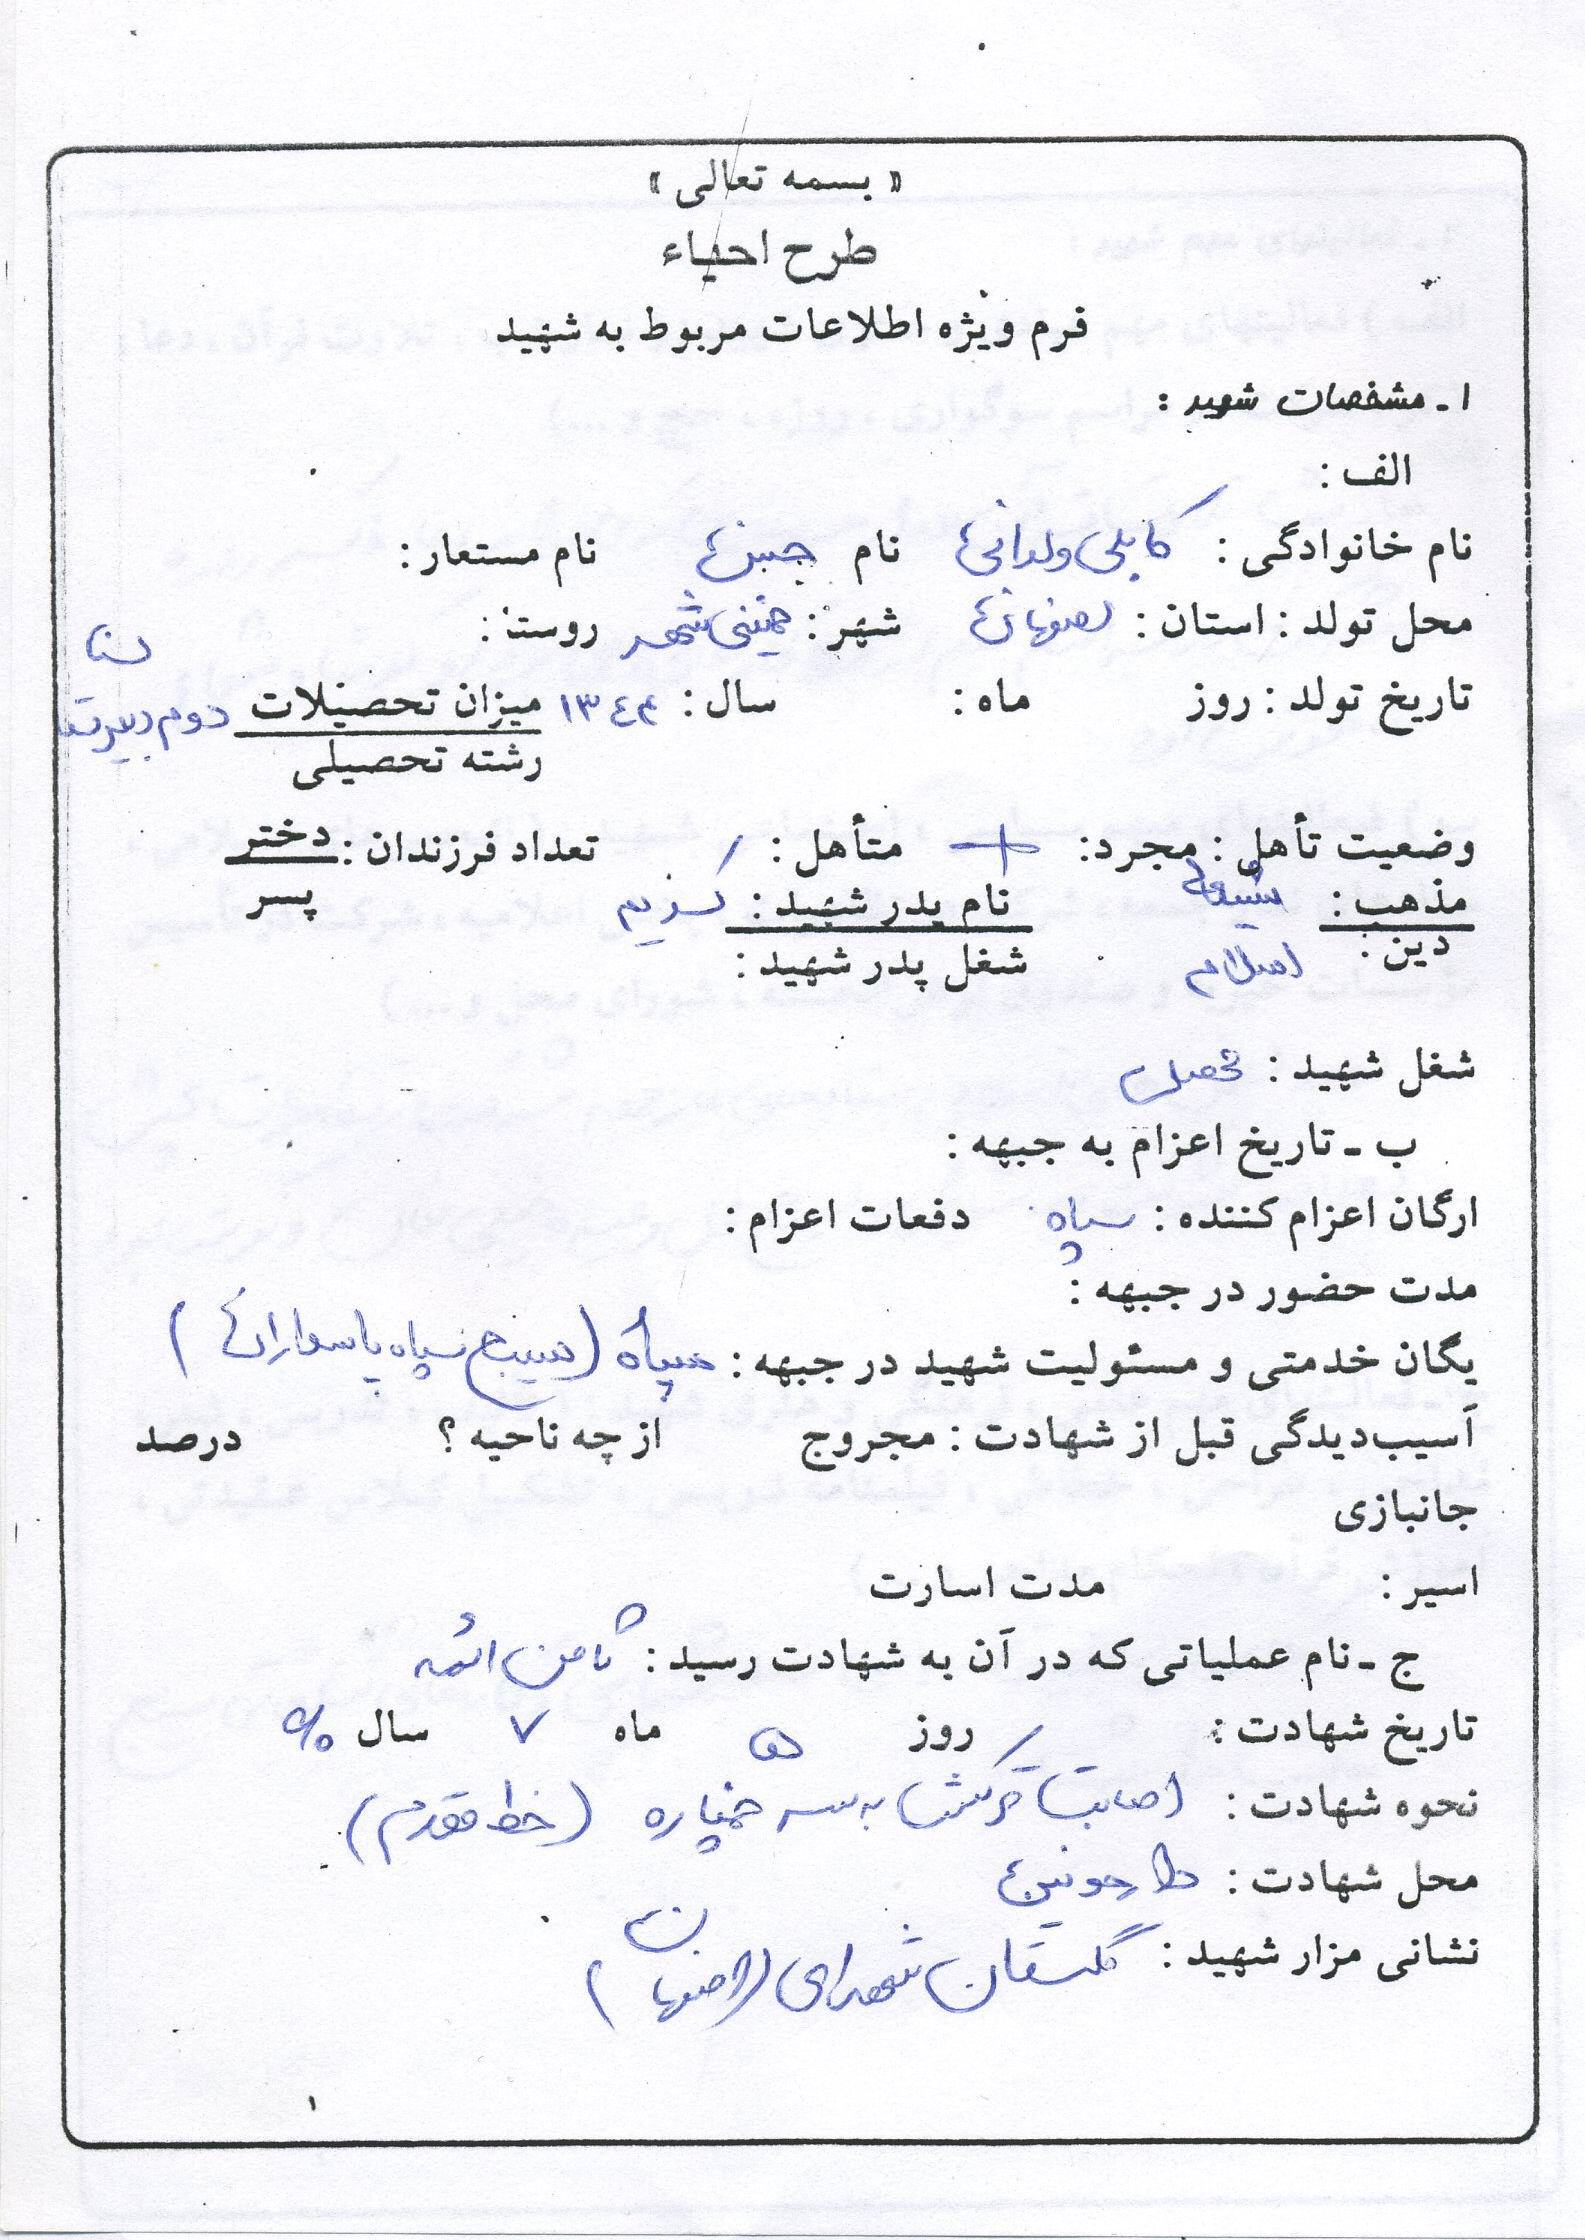 « بسمه تعالی »
طرح احیاء
فرم ویژه اطلاعات مربوط به شهید
۱ـ مشخصات شهید :
الف :
نام خانوادگی : کابلی ولدانی نام حسن نام مستعار :
محل تولد : استان : اصفهان شهر : خمینی شهر روستا :
تاریخ تولد : روز ماه : سال : ۱۳۴۴ میزان تحصیلات دوم دبیرستان
رشته تحصیلی
وضعیت تأهل : مجرد : + متأهل : تعداد فرزندان : دختر
مذهب : شیعه نام پدر شهید : کریم پسر
دین : اسلام شغل پدر شهید :
شغل شهید : محصل
ب ـ تاریخ اعزام به جبهه :
ارگان اعزام کننده : سپاه دفعات اعزام :
مدت حضور در جبهه :
یگان خدمتی و مسئولیت شهید در جبهه : سپاه ( بسیج سپاه پاسداران )
آسیب‌دیدگی قبل از شهادت : مجروح از چه ناحیه ؟ درصد
جانبازی
اسیر : مدت اسارت
ج ـ نام عملیاتی که در آن به شهادت رسید : ثامن ائمه
تاریخ شهادت : روز ۵ ماه ۷ سال ۶۰
نحوه شهادت : اصابت ترکش به سر خمپاره ( خط مقدم )
محل شهادت : دارخوین
نشانی مزار شهید : گلستان شهدای ( اصفهان )
۱